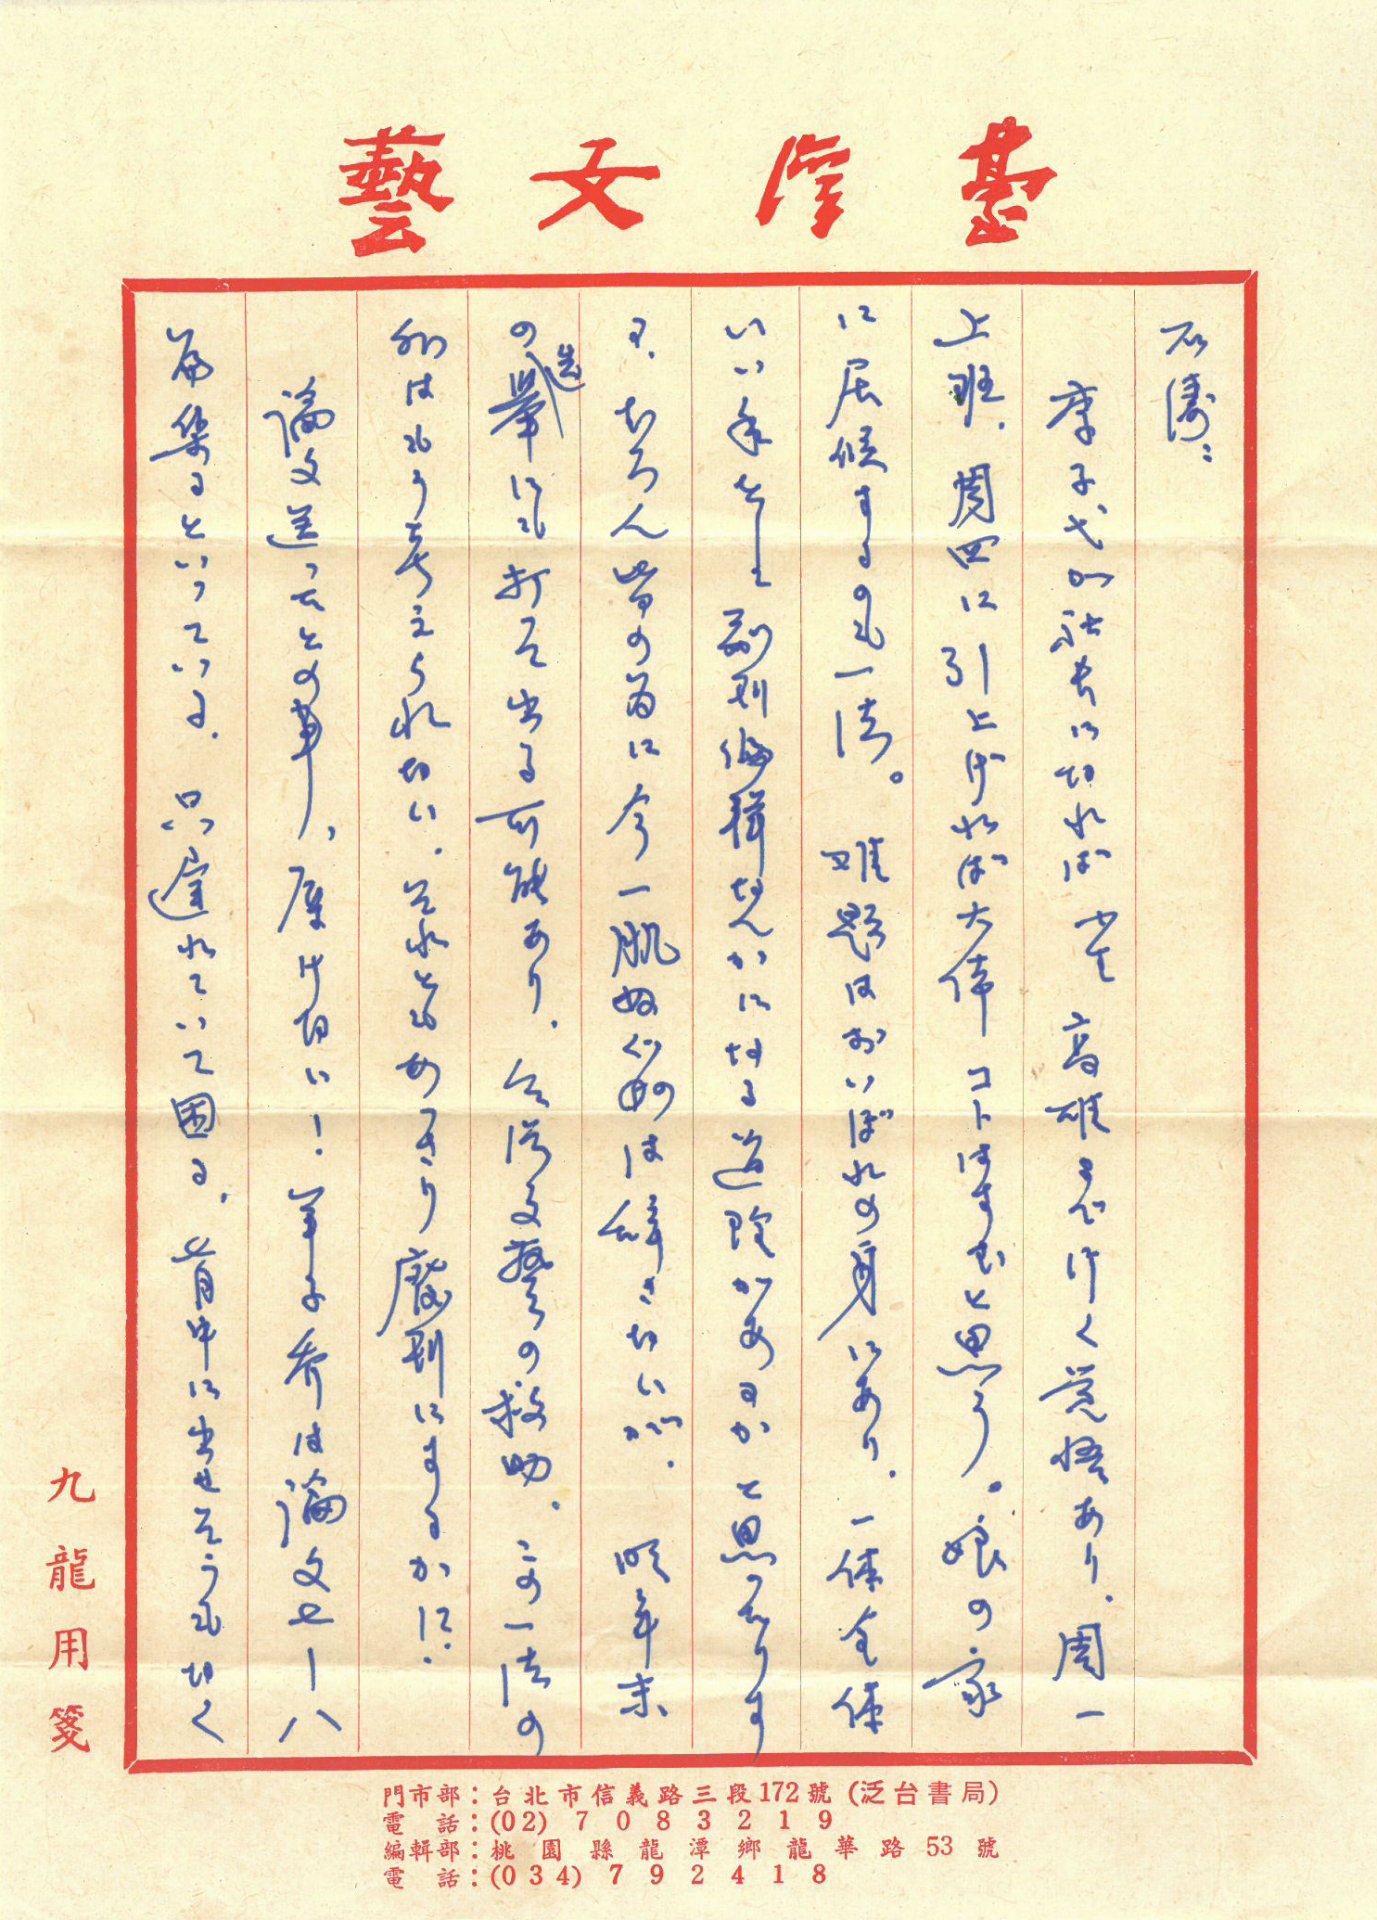 臺灣文藝
石濤：
李子弋が社長に切れば 高雄まで行く覚悟あり、周一
上班、周四に引上げれば大体コトはすむと思う。娘の家
に居候するのも一法。難題はおいぼれの身にあり。一体全体
いい年をして副刊編輯なんかになる道理があるかと思つております
が。もちろん皆の為に今一肌ぬぐ のは辞さないが、明年末
の選挙にも打って出る可能あり、台湾文藝の救助、この一法の
外はもう考えられない。それともあつさり廃刊にするかに。
論文送ったとの事、 ！ 論文七—八
篇集るといっている。只遅れていて困る。 中に出せそうもなく
九龍用箋
門市部：台北市信義路三段172號 (泛台書局)
電　話：(02) 7083219
編輯部：桃園縣龍潭鄉龍華路53號
電　話：(034) 792418